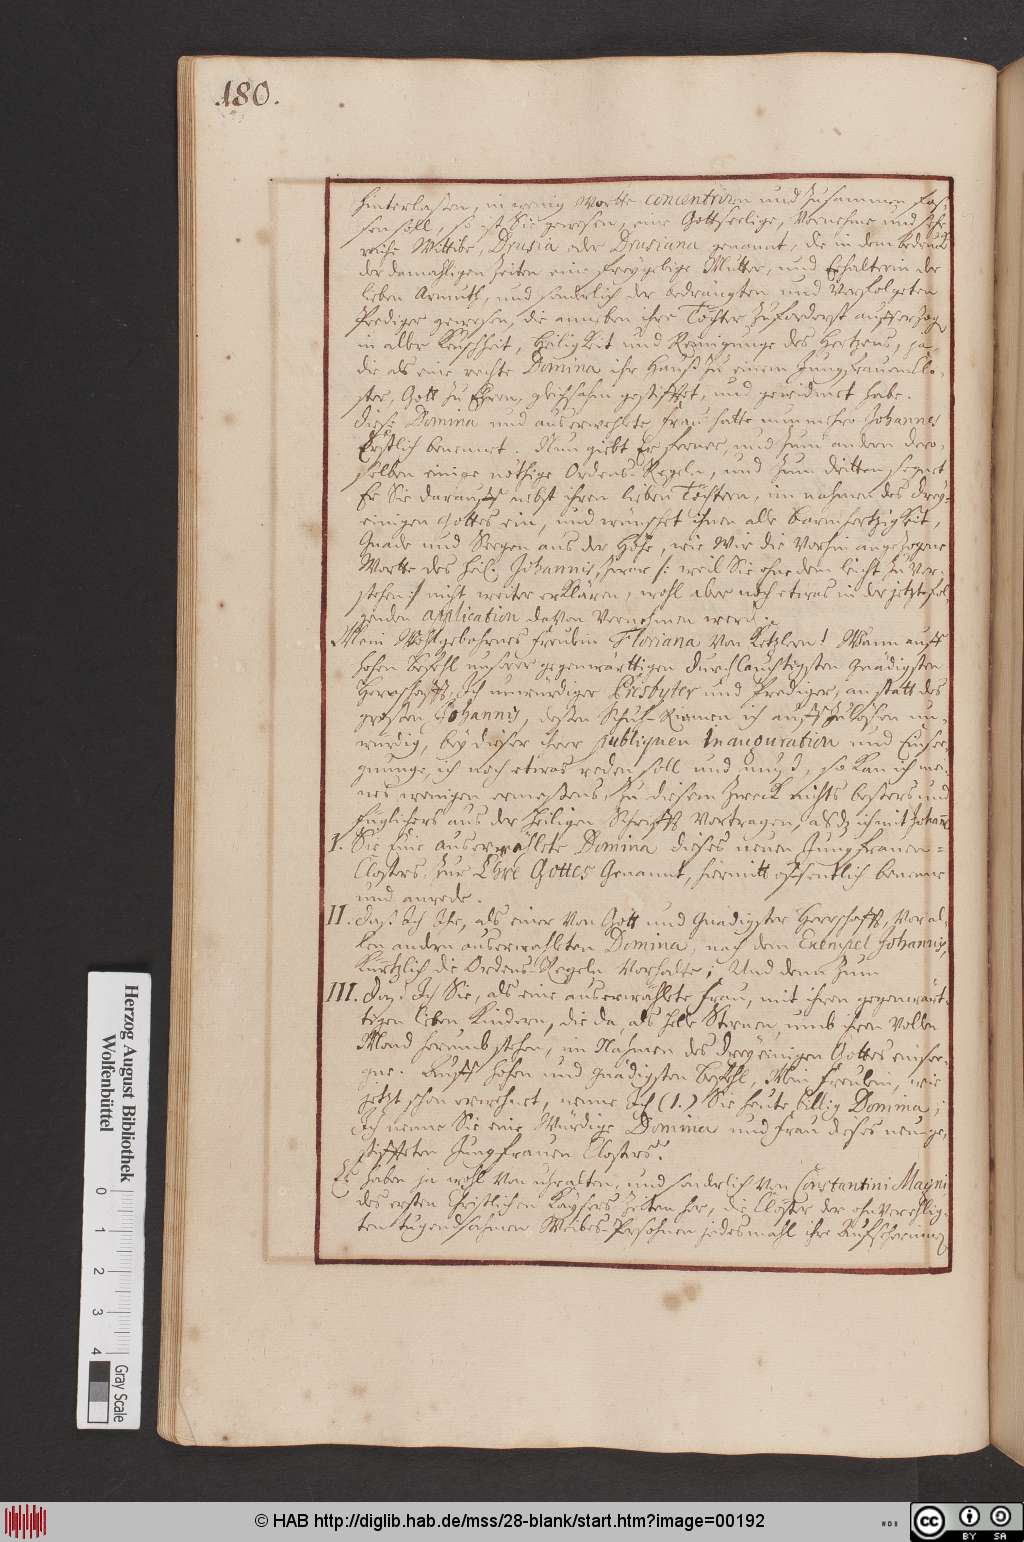 180.
hinterlaßen, in wenig Wortte concentriren und zusammen faß-
sen soll, so ist Sie gewesen, eine Gottseelige, Vornehme und sehr
reiche Wittibe, Drusia oder Drusiana genannt, die in dem
der damahligen Zeiten eine freygebige Mutter, und Erhalterin der
lieben Armuth, und sonderlich der bedrängten und Verfolgeten
Prediger gewesen, die anneben ihre Töchter zuforderst aufferzog
in aller Keuschheit, Heiligkeit und Reinigunge des Hertzens, ja,
die als eine rechte Domina ihr Hauß zu einem Jungfrauen Clo-
ster, Gott zu Ehren, gleichsahm gestifftet, und gewidmet habe.
Diese Domina und auserwehlte Frau hatte nunmehro Johannes
Erstlich benennet. Nun giebt Er ferner, und zum andern dero-
selben einige nöthige Ordens-Regeln, und zum dritten segnet
Er Sie darauff nebst ihren lieben Töchtern, im nahmen des drey-
einigen Gottes ein, und wünschet ihnen alle Barmhertzigkeit,
Gnade und Seegen aus der Höhe, wie Wir die Vorhin angezogene
Wortte des Heil. Johannis, zwar /: weil Sie ohne dem leicht zu Ver-
stehen :/ nicht weiter erklären, wohl aber noch etwas in der jetzt fol-
genden application davon Vernehmen werden.
Mein Wohlgebohrnes Freulein Floriana von Ketzlern! Wann auff
hohen Befehl unserer gegenwärttigen Durchlauchtigsten Gnädigsten
Herrschafft, Ich unwürdiger Presbyter und Prediger, anstatt des
großen Johannis, deßen Schuh-Riemen ich auffzulösen un-
würdig, bey dieser ihrer publiquen Inauguration und Einsee-
gnunge, ich noch etwas reden soll und muß, so kan ich mei-
nes wenigen ermeßens, zu diesem Zweck nichts beßers und
füglichers aus der Heiligen Schrifft Vortragen, als dz ich mit Johanne
I. Sie Eine auserwählete Domina dieses neuen Jungfrauen-
Closters, Zur Ehre Gottes Genannt, hiermitt offentlich benenne
und anrede.
II. Daß Ich Ihr, als einer von Gott und Gnädigster Herrschafft, Vor al-
len andern auserwehlten Domina, nach dem Exempel Johannis,
Kürtzlich die Ordens-Regeln Vorhalte; Und denn zum
III. Daß Ich Sie, als eine auserwählte Frau, mit ihren gegenwärt-
tigen lieben Kindern, die da, als helle Sternen, umb ihren Vollen
Mond herumb stehen, im Nahmen des dreyeinigen Gottes einsee-
gne. Auff hohen und gnädigsten Befehl, Mein Freulein, wie
jetzt schon erwehnet, nenne Ich (1.) Sie heute billig Domina;
Ich nenne Sie eine Würdige Domina und Frau dieses neu ge-
stiffteten Jungfrauen Closters.
Es haben ja wohl von uhralten, und sonderlich von Constantini Magni
des ersten Christlichen Kaysers Zeiten her, die Clöster der ohnverehlig-
ten tugendsahmen Weibes-Persohnen jedesmahl ihre Auffseherinnen
Herzog August Bibliothek
Wolfenbüttel
0 1 2 3 4
Gray Scale
© HAB http://diglib.hab.de/mss/28-blank/start.htm?image=00192
WDB
cc BY SA